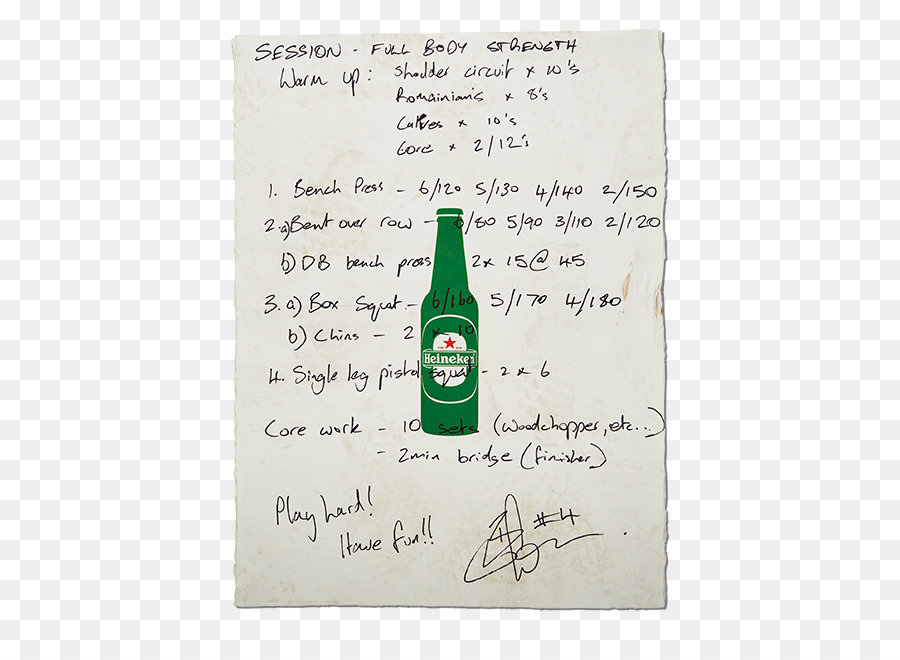 SESSION - FULL BODY STRENGTH
Warm up : Shoulder circuit x 10's
Romainian's x 8's
Calves x 10's
Core x 2/12's
1. Bench Press - 6/120 5/130 4/140 2/150
2. a) Bent over row - 6/80 5/90 3/110 2/120
b) DB bench press 2x 15@ 45
3. a) Box Squat - 6/160 5/170 4/180
b) Chins - 2 x 10
Heineken
4. Single leg pistol squat - 2 x 6
Core work - 10 sets (woodchopper, etc..)
- 2min bridge (finisher)
Play hard!
Have fun!!
#4